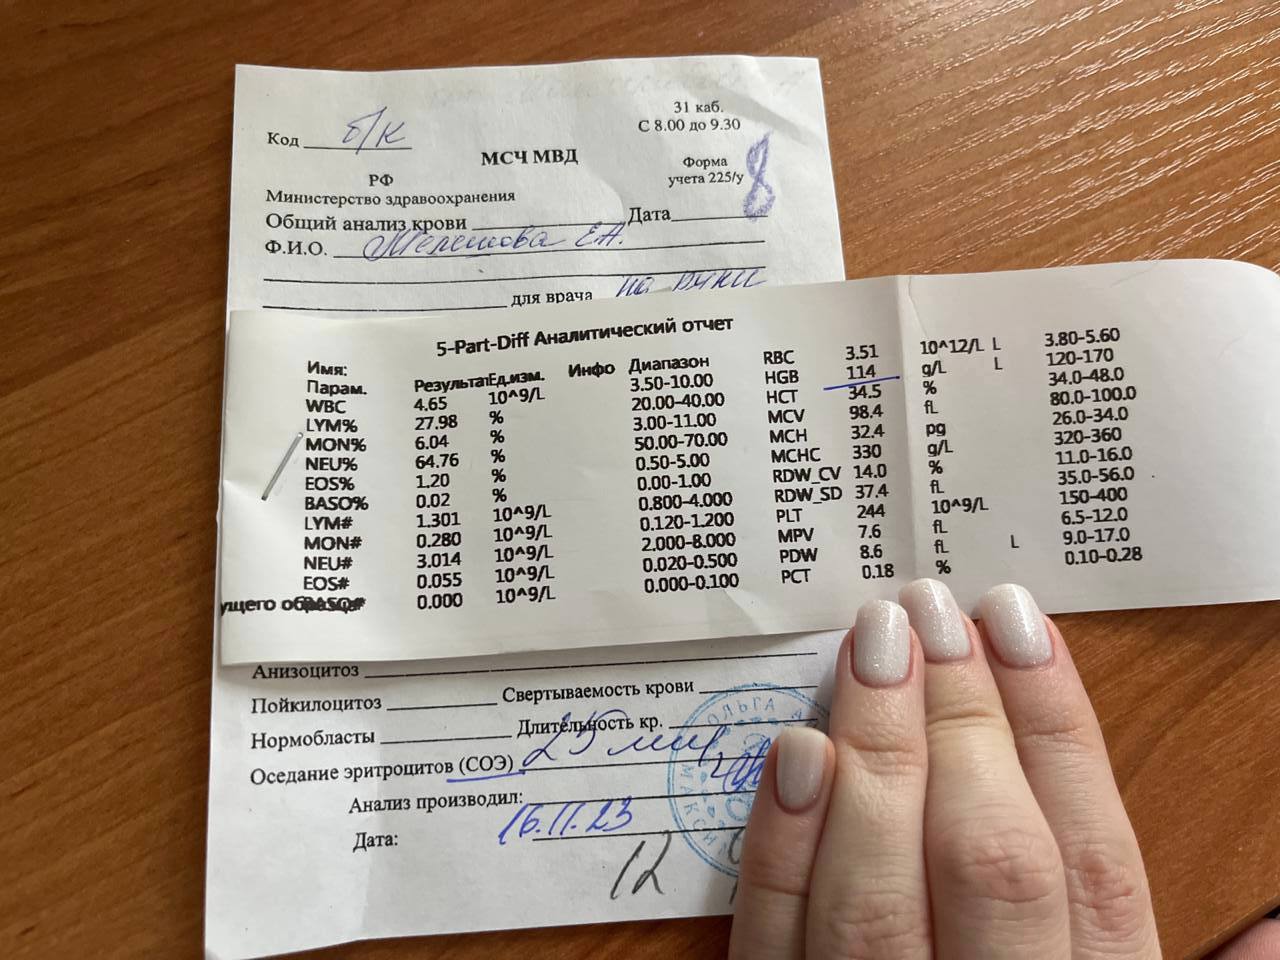 31 каб.
С 8.00 до 9.30
Код б/к
МСЧ МВД
Форма
учета 225/у
8
РФ
Министерство здравоохранения
Общий анализ крови Дата
Ф.И.О. Мелешова Е.А.
для врача на руки
5-Part-Diff Аналитический отчет
Имя:
Парам. Результат Ед.изм. Инфо Диапазон
WBC 4.65 10^9/L 3.50-10.00
LYM% 27.98 % 20.00-40.00
MON% 6.04 % 3.00-11.00
NEU% 64.76 % 50.00-70.00
EOS% 1.20 % 0.50-5.00
BASO% 0.02 % 0.00-1.00
LYM# 1.301 10^9/L 0.800-4.000
MON# 0.280 10^9/L 0.120-1.200
NEU# 3.014 10^9/L 2.000-8.000
EOS# 0.055 10^9/L 0.020-0.500
BASO# 0.000 10^9/L 0.000-0.100
RBC 3.51 10^12/L L 3.80-5.60
HGB 114 g/L L 120-170
HCT 34.5 % 34.0-48.0
MCV 98.4 fL 80.0-100.0
MCH 32.4 pg 26.0-34.0
MCHC 330 g/L 320-360
RDW_CV 14.0 % 11.0-16.0
RDW_SD 37.4 fL 35.0-56.0
PLT 244 10^9/L 150-400
MPV 7.6 fL 6.5-12.0
PDW 8.6 fL L 9.0-17.0
PCT 0.18 % 0.10-0.28
Анизоцитоз
Пойкилоцитоз Свертываемость крови
Нормобласты Длительность кр.
Оседание эритроцитов (СОЭ) 25 мм/
Анализ производил:
Дата: 16.11.23
12
ОЛЬГА